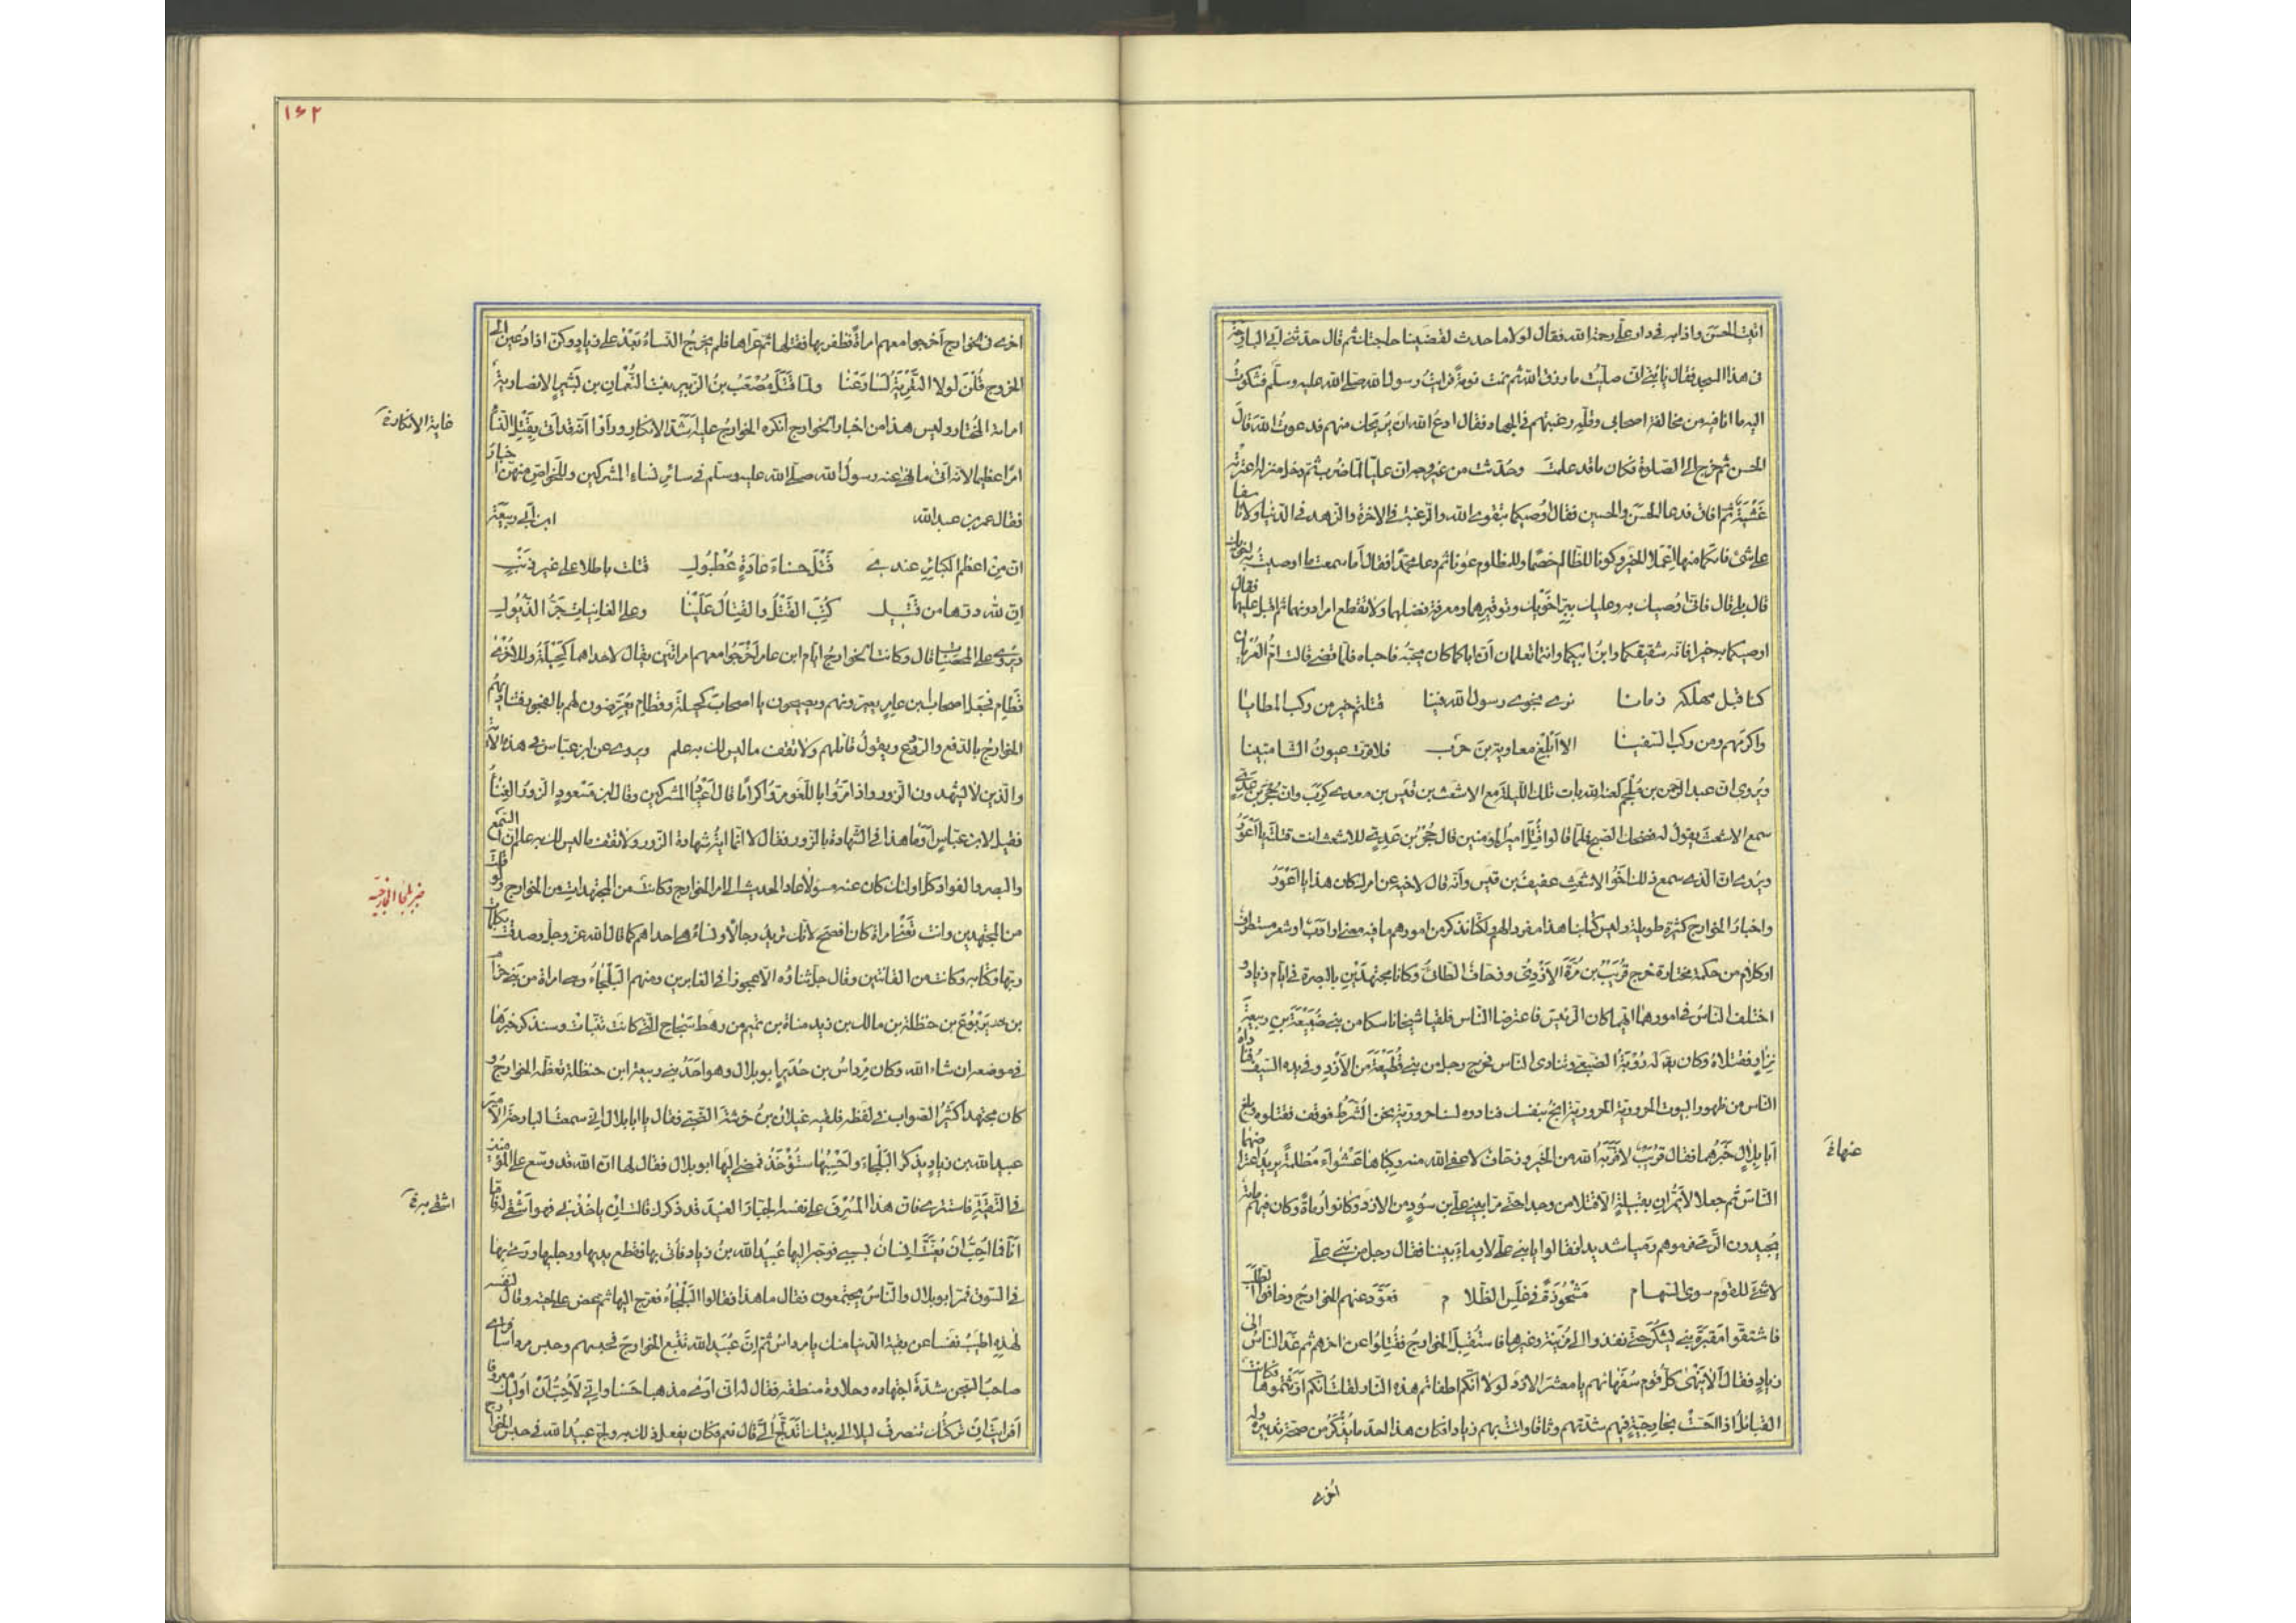 اتيت الحسن واذا به فى دار علىّ رحمة الله فقال لولا ما حدث لقضينا حاجتك ثم قال حدثنى ابى البارحة
فى هذا المسجد فقال يا بنىّ انى صليت ما رزق الله ثم نمت نومة فرايت رسول الله صلى الله عليه وسلم فشكوت
اليه ما انا فيه من مخالفة اصحابى وقلة رغبتهم فى الجهاد فقال ادع الله ان يريحك منهم فدعوت الله قال
الحسن ثم خرج الى الصلوة فكان ما قد علمت وحُدّثت من غير وجه ان عليّا لما ضُرب ثم دخل منزله اعترته
غَشْيَةٌ ثم افاق فدعا الحسن والحسين فقال اوصيكما بتقوى الله والرغبة فى الاخرة والزهد فى الدنيا ولا تاسفا
على شئ فاتكما منها اعملا الخير وكونا للظالم خصما وللمظلوم عونا ثم دعا محمّدا فقال اما سمعت ما اوصيت به اخويك
قال بلى قال فانى اوصيك به وعليك ببرّ اخويك وتوقيرهما ومعرفة فضلهما ولا تقطع امرا دونهما ثم اقبل عليهما فقال
اوصيكما به خيرا فانه شقيقكما وابن ابيكما وانتما تعلمان ان اباكما كان يحبّه فاحباه فلما قضى قالت امّ العُريان
كنا قبل مهلكه زمانا نرى نجوى رسول الله فينا قتلتم خير من ركب المطايا
واكرمهم ومن ركب السفينا الا ابلغ معاوية بن حرب فلا قرّت عيون الشامتينا
ويُروى ان عبد الرحمن بن مُلْجَم لعنه الله بات تلك الليلة مع الاشعث بن قيس بن معدى كرب وان حُجْر بن عَدِىّ
سمع الاشعث يقول له فضحك الصبح فلمّا قالوا قُتل امير المومنين قال حُجْر بن عَدِىّ للاشعث انت قتلته يا اَعْوَرُ
ويُروى ان الذى سمع ذلك اخو الاشعث عفيف بن قيس وانّه قال لاخيه عن امرك كان هذا يا اَعْوَرُ
واخبار الخوارج كثيرة طويلة وليس كتابنا هذا مفردا لهم لكنّا نذكر من امورهم ما فيه معنى او ادب او شعر مستطرف
او كلام من حكمة مختارة خرج قُرَيْب بن مُرّة الاَزْدِىّ وزحاف الطائىّ وكانا مجتهدَيْن بالبصرة فى ايام زياد و
اختلف الناس فى امورهما ايّهما كان الرئيس فاعترضا الناس فلقيا شيخا ناسكا من بنى ضُبَيْعَة بن ربيعة بن
نزار فقتلاه وكان يقال له رُؤْبَةُ الضبعى وتنادى الناس فخرج رجل من بنى قُطَيْعَة من الاَزْد وفى يده السيف فناداه
الناس من ظهور البيوت الحرورية الحرورية انجُ بنفسك فنادوه لسنا حرورية نحن الشُّرَط فوقف فقتلوه وبلغ
ابا بلال خبرهما فقال قُريب لا قرّبه الله من الخير وزحاف لا عفى الله عنه ركباها عشواء مُظلمة يريد اعتراضهما
عنهاخ
الناس ثم جعلا لا يمرّان بقبيلة الّا قتلا من وجدا حتى مرّا ببنى علىّ بن سُود من الازد وكانوا رُماة وكان فيهم مائة
يُجيدون الرمى فرموهم رميا شديدا فقالوا يا بنى علىّ لا رِماءَ بيننا فقال رجل من بنى علىّ
لا شئ للقوم سوى السهام مَشْحُوذَةً فى غلس الظلام فعرّد عنهم الخوارج وخافوا الطلب
فاشتقوا مقبرة بنى يَشْكُرَ حتى نفذوا الى مُزَيْنة وغيرها فاستُقبل الخوارج فقُتِلوا عن اخرهم ثم غدا الناس الى
زياد فقال الا يَنْهَى كلّ قوم سُفَهاءَهم يا معشر الازد لولا انّكم اطفاتم هذه النار لقلت انّكم اَرَّثْتُموها فكانت
القبائل اذا احسّت بخارجيّة فيهم شدّتهم وثاقا واتت بهم زيادا فكان هذا احد ما يُذْكَر من صحّة تدبيره وله
اخرى
١٦٢
اخرى فى الخوارج اَخْرجوا معهم امراة فظفر بها فقتلها ثم عرّاها فلم يخرج النساء بَعْدُ على زياد وكنّ اذا دُعين الى
الخروج قُلْنَ لولا التَّعْرِيَةُ لسارعنا ولمّا قَتَلَ مُصْعَبُ بنُ الزبير بنت النُّعْمان بن بشير الانصارية
امراة المختار وليس هذا من اخبار الخوارج انكره الخوارج عليه اَشَدّ الانكار وراَوْا انّه قد اتى بقتل النساء
غاية الانكارخ
امرا عظيما لانه اتى ما نهى عنه رسول الله صلى الله عليه وسلم فى سائر نساء المشركين وللخواص منهنّ اخبار
فقال عمر بن عبد الله ابن ابى ربيعة
ان من اعظم الكبائر عندى قَتْلَ حسناء غادةٍ عُطْبُول قتلت باطلا على غير ذنب
ان لله درّها من قتيل كُتِبَ القَتْلُ والقِتالُ عَلَيْنا وعلى الغانيات جَرُّ الذُّيُول
ويُروى على المحصنات قال وكانت الخوارج ايّام ابن عامر اخرجوا معهم امراتين يقال لاحداهما كُحَيْلَةُ والاُخْرى
قطام فجعل اصحاب ابن عامر يعيّرونهم ويصيحون يا اصحاب كحيلة وقطام يُعَرّضون لهم بالفجور فتناديهم
الخوارج بالدفع والردع ويقول قائلهم ولا تقف ما ليس لك به علم ويروى عن ابن عباس فى هذه الآية
والذين لا يشهدون الزور واذا مرّوا باللّغو مرّوا كراما قال اعياد المشركين وقال ابن مسعود الزور الغناء
فقيل لابن عباس اَوَما هذا فى الشهادة بالزور فقال لا انّما آية شهادة الزور ولا تقف ما ليس لك به علم ان السمع
والبصر والفواد كل اولئك كان عنه مسؤلا عاد الحديث الى امر الخوارج وكانت من المجتهدات من الخوارج ولو قلت
خبر البلجاء الخارجيّة
من المجتهدين وانت تعنى امراة كان افصح لانّك تريد رجالا ونساءً هى احداهم كما قال الله عز وجل وصدقت بكلمات
ربّها وكتابه وكانت من القانتين وقال جلّ ثناؤه الّا عجوزا فى الغابرين ومنهم البَلْجاءُ وهى امراة من بنى حرام
بن يَرْبُوع بن حنظلة بن مالك بن زيد مناة بن تميم من رهط سَجاح التى كانت تنبّات وسنذكر خبرها
فى موضعه ان شاء الله وكان مِرْداس بن حُدَير ابو بلال وهو احد بنى ربيعة ابن حنظلة تعظّمه الخوارج و
كان مجتهدا كثير الصواب فى لفظه فلقيه غيلان بن خَرَشَة الضبّى فقال يا ابا بلال انّى سمعت البارحة الامير
عبيد الله بن زياد يذكر البَلْجاءَ واَحْسِبُها ستُؤْخَذُ فمضى اليها ابو بلال فقال لها انّ الله قد وسّع على المؤمنين
فى التَّقِيَّة فاستترى فان هذا المُسْرِف على نفسه الجبّار العنيد قد ذكرك قالت ان ياخذنى فهو اَشْقى له فامّا
اشقى بهخ
اَنَا فما اُحِبّ ان يُعَنَّتَ انسانٌ بسببى فوجّه اليها عُبَيْد الله بن زياد فاتى بها فقطع يديها ورجليها ورمى بها
فى السوق فمرّ ابو بلال والناس مجتمعون فقال ما هذا فقالوا البَلْجاءُ فعرّج اليها ثم عضّ على لحيته وقال لنفسه
لهذه اطيبُ نفسا عن بقيّة الدنيا منك يا مرداس ثم انّ عُبَيْد الله تتبّع الخوارج فحبسهم وحبس مرداسا فراى
صاحب السجن شدّة اجتهاده وحلاوة منطقه فقال له انى ارى مذهبا حَسَنا وانّى لاُحِبّ ان اُولِيَك معروفا
اَفرايت ان تركتك تنصرف ليلا الى بيتك اَتَدَّلِجُ الىّ قال نعم فكان يفعل ذلك به ولجّ عبيد الله فى حبس الخوارج